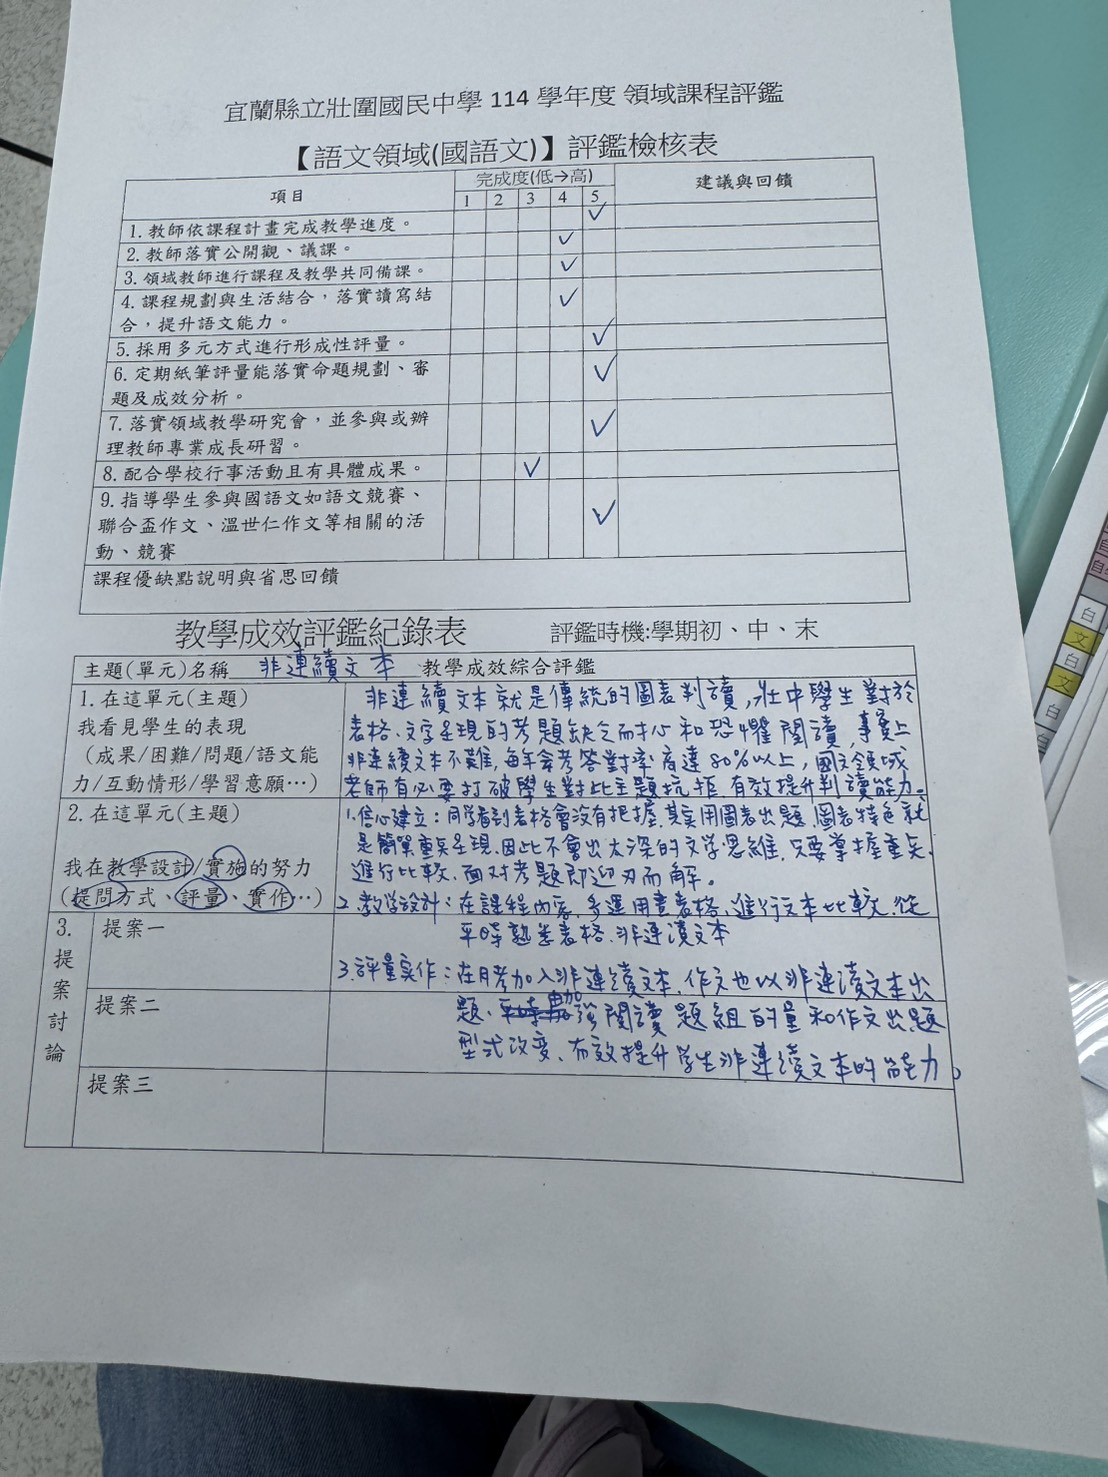 宜蘭縣立壯圍國民中學 114 學年度 領域課程評鑑
【語文領域(國語文)】評鑑檢核表
項目
完成度(低→高)
建議與回饋
1 2 3 4 5
1. 教師依課程計畫完成教學進度。 ✓
2. 教師落實公開觀、議課。 ✓
3. 領域教師進行課程及教學共同備課。 ✓
4. 課程規劃與生活結合，落實讀寫結
合，提升語文能力。 ✓
5. 採用多元方式進行形成性評量。 ✓
6. 定期紙筆評量能落實命題規劃、審
題及成效分析。 ✓
7. 落實領域教學研究會，並參與或辦
理教師專業成長研習。 ✓
8. 配合學校行事活動且有具體成果。 ✓
9. 指導學生參與國語文如語文競賽、
聯合盃作文、溫世仁作文等相關的活
動、競賽 ✓
課程優缺點說明與省思回饋
教學成效評鑑紀錄表 評鑑時機:學期初、中、末
主題(單元)名稱 非連續文本 教學成效綜合評鑑
1. 在這單元(主題)
我看見學生的表現
(成果/困難/問題/語文能
力/互動情形/學習意願…)
非連續文本就是傳統的圖表判讀,壯中學生對於
表格、文字呈現的考題缺乏耐心和恐懼閱讀,事實上
非連續文本不難,每年會考答對率高達80%以上,國文領域
老師有必要打破學生對此主題抗拒,有效提升判讀能力。
2. 在這單元(主題)
我在教學設計/實施的努力
(提問方式、評量、實作…)
1.信心建立:同學看到表格會沒有把握,其實用圖表出題,圖表特色就
是簡單重點呈現,因此不會出太深的文學思維,只要掌握重點、
進行比較、面對考題即迎刃而解。
2.教學設計:在課程內容,多運用畫表格,進行文本比較,從
平時熟悉表格、非連續文本
3.評量實作:在月考加入非連續文本,作文也以非連續文本出
題、加強閱讀題組的量和作文出題
型式改變、有效提升學生非連續文本的能力。
3.
提
案
討
論
提案一
提案二
提案三
白
文
白
文
白